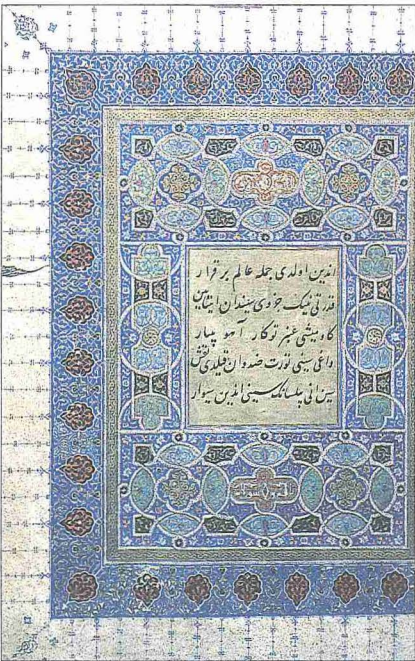 اندین اولدی جمله عالم بر قرار
قدرتی نینک جزوی سیندان ایتایین
کاومیشی عنبر توکار آهو
داغی سینی تورت ضددان قیلدی نقش
انی بیلسانک سینی اندین سیوار